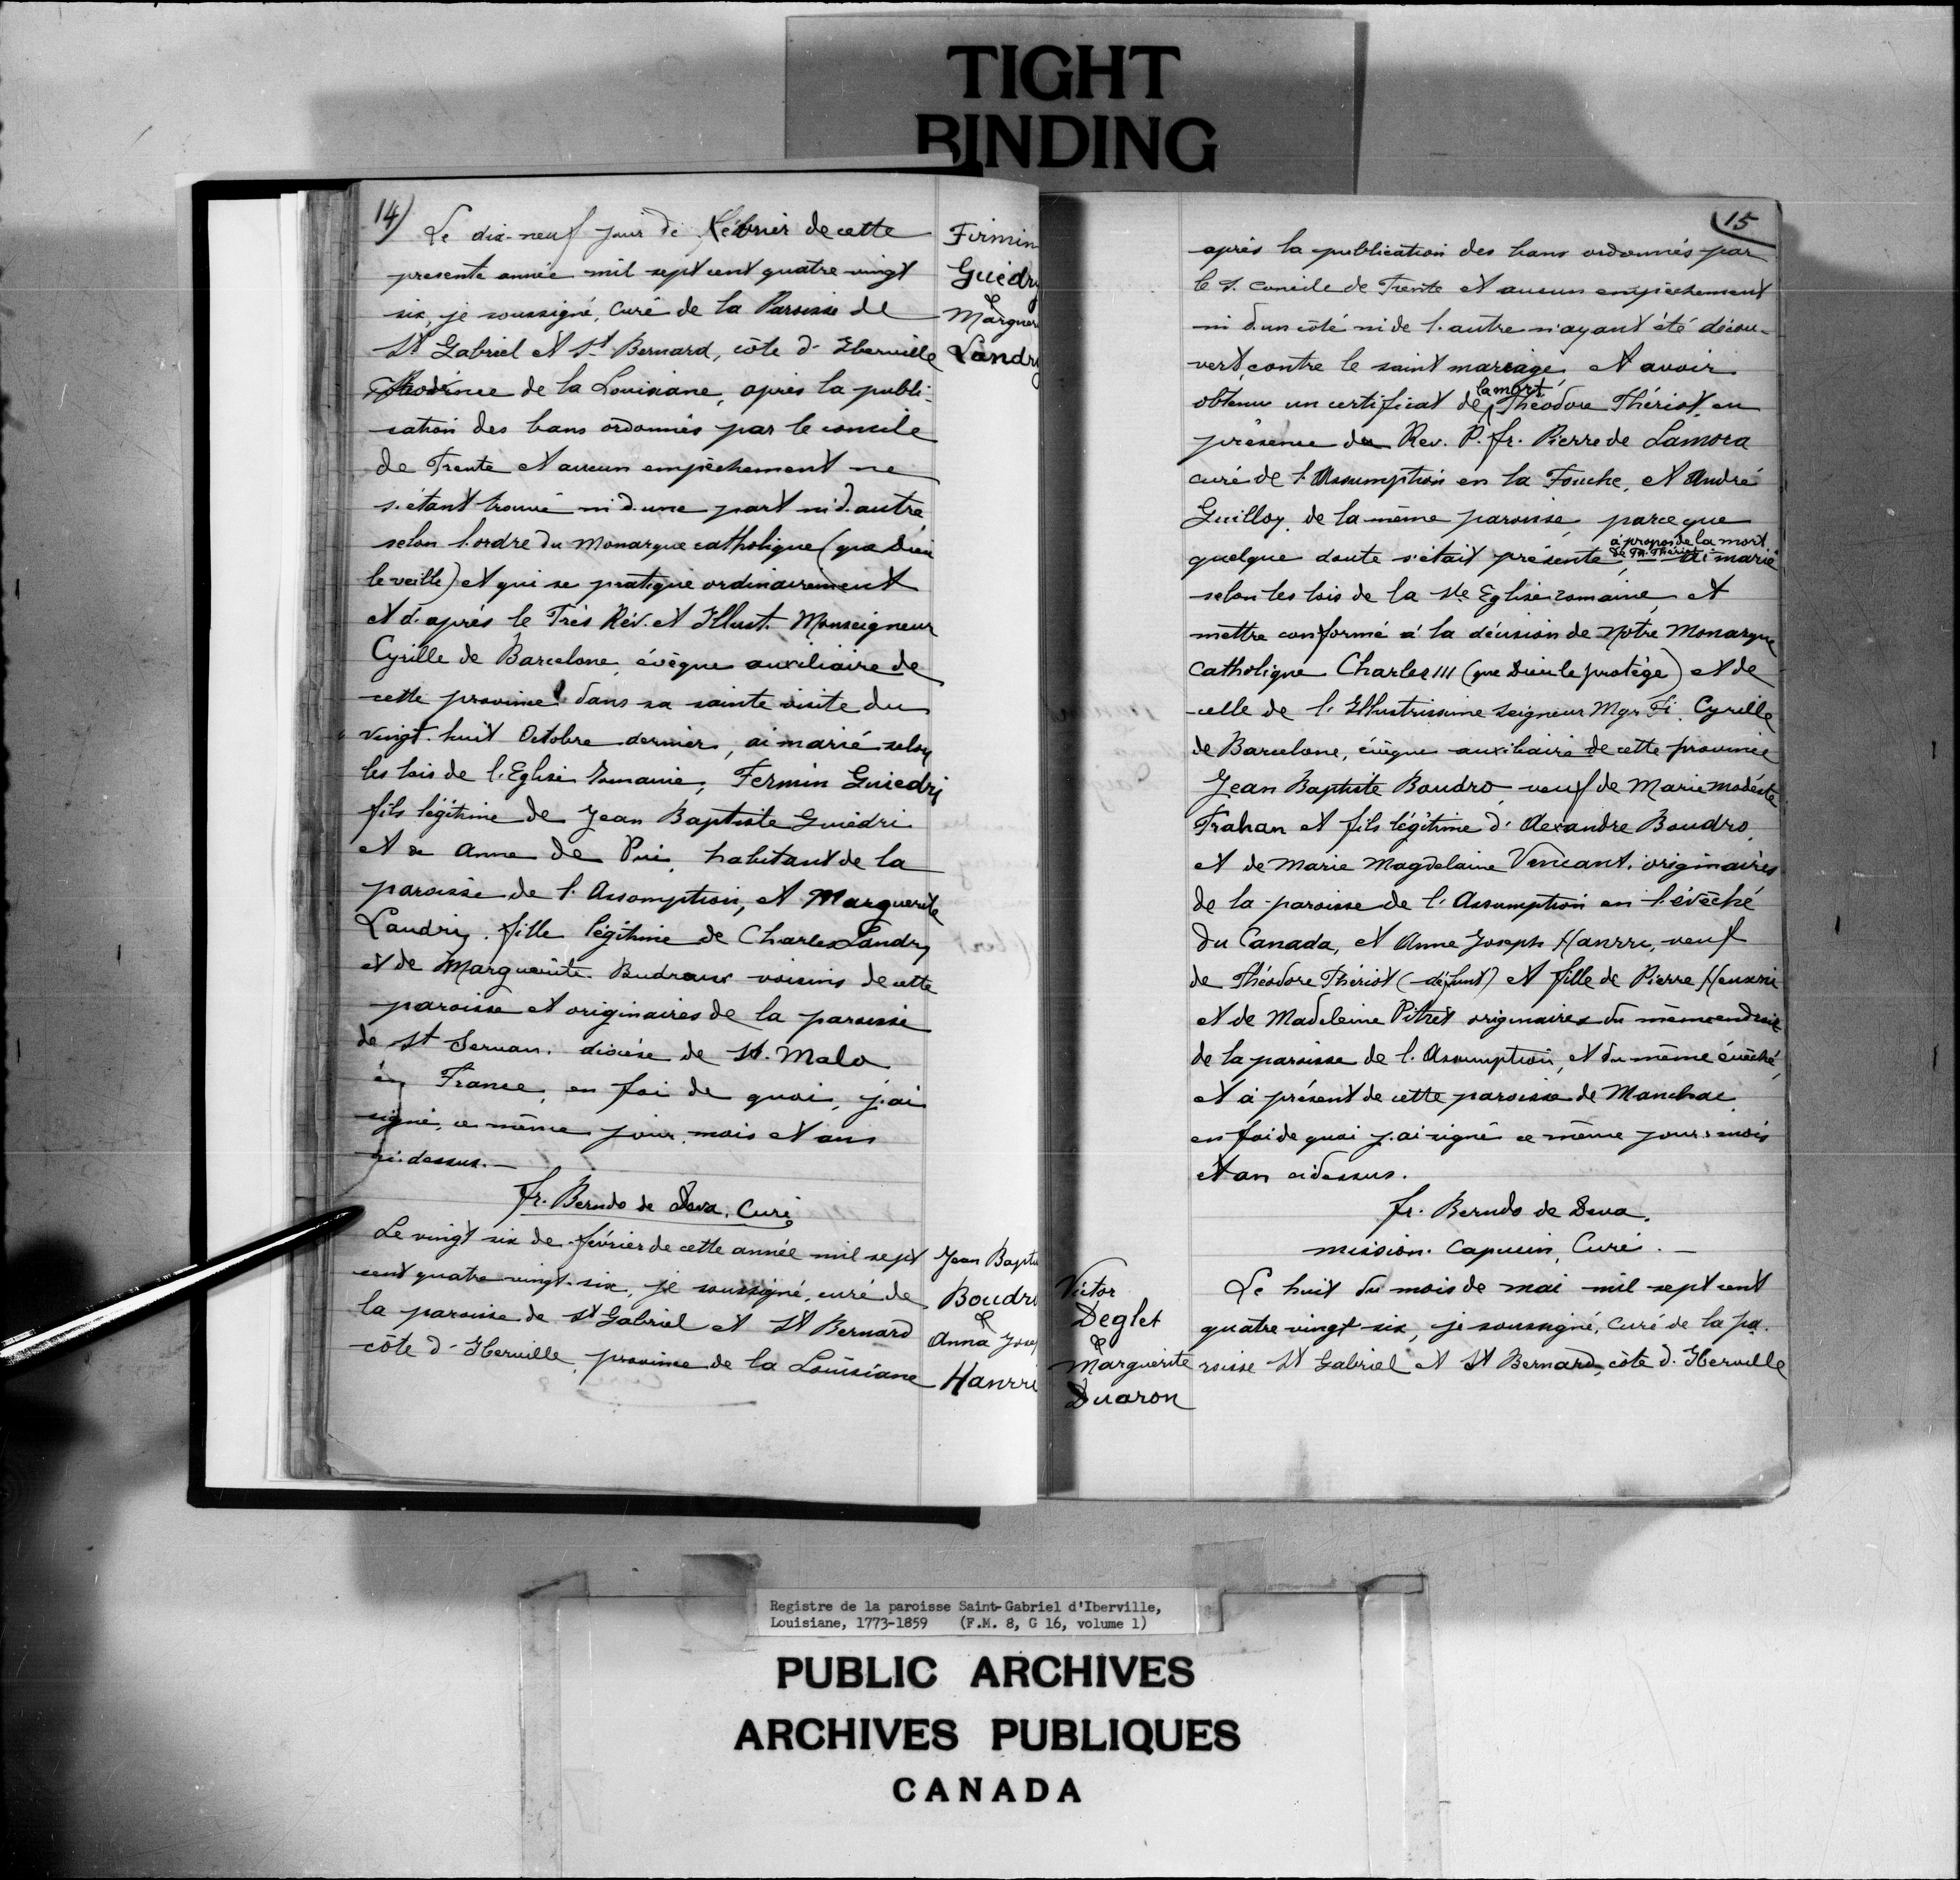 TIGHT
BINDING
14)
Le dix-neuf jour de Février de cette
presente année mil sept cent quatre vingt
six, je soussigné, curé de la Paroisse de
St Gabriel et St Bernard, côte d'Iberville
Province de la Louisiane, après la publi-
cation des bans ordonnés par le concile
de Trente et aucun empêchement ne
s'étant trouvé ni d'une part ni d'autre
selon l'ordre du Monarque catholique (que Dieu
le veille) et qui se pratique ordinairement
et d'après le Très Rév. et Illust. Monseigneur
Cyrille de Barcelone, évèque auxiliaire de
cette province dans sa sainte visite du
vingt-huit Octobre dernier, ai marié selon
les lois de l'Eglise Romaine, Fermin Guiedri
fils légitime de Jean Baptiste Guiédri
et de Anne de Pui, habitant de la
paroisse de l'Assomption, et Marguerite
Landry, fille légitime de Charles Landry
et de Marguerite Budraux voisins de cette
paroisse et originaires de la paroisse
de St Servan, diocèse de St. Malo
en France, en foi de quoi, j'ai
signé, ce même jour, mois et an
ci-dessus.—
fr. Berndo de Deva, Curé
Le vingt six de février de cette année mil sept
cent quatre vingt-six, je soussigné, curé de
la paroisse de St Gabriel et St Bernard
côte d'Iberville, province de la Louisiane
Firmin
Guédry
&
Marguer
Landry
Jean Bapt
Boudr
&
Anna Jose
Hanrri
15
après la publication des bans ordonnés par
le S. Concile de Trente et aucun empêchement
ni d'un côté ni de l'autre n'ayant été décou-
vert, contre le saint mariage et avoir
la mort
obtenu un certificat de Théodore Thériot, en
présence du Rev. P. fr. Pierre de Lamora
curé de l'Assumption en la Fouche, et André
Guilloy, de la même paroisse, parceque
à propos de la mort
de Th. Thériot
quelque doute s'était présenté, ai marié
selon les lois de la Ste Eglise romaine, et
mettre conformé à la décision de Notre Monarque
Catholique Charles III (que Dieu le protège) et de
celle de l'Illustrissime Seigneur Mgr Fi. Cyrille
de Barcelone, évèque auxiliaire de cette province
Jean Baptiste Boudro, veuf de Marie Modéste
Trahan et fils légitime d'Alexandre Boudro,
et de Marie Magdelaine Vincant, originaires
de la paroisse de l'Assumption en l'évêché
du Canada, et Anne Joseph Hanrri, veuf
de Théodore Thériot (défunt) et fille de Pierre Henrri
et de Madeleine Pitret originaires du même endroit
de la paroisse de l'Assumption, et du même évêché,
et à présent de cette paroisse de Manchac
en foi de quoi j'ai signé ce même jour, mois
et an ci dessus.
fr. Berndo de Deva,
mission. Capucin, Curé.—
Le huit du mois de mai mil sept cent
quatre vingt six, je soussigné, Curé de la pa-
roisse St Gabriel et St Bernard, côte d'Iberville
Victor
Deglet
&
Marguerite
Duaron
Registre de la paroisse Saint-Gabriel d'Iberville,
Louisiane, 1773-1859 (F.M. 8, G 16, volume 1)
PUBLIC ARCHIVES
ARCHIVES PUBLIQUES
CANADA